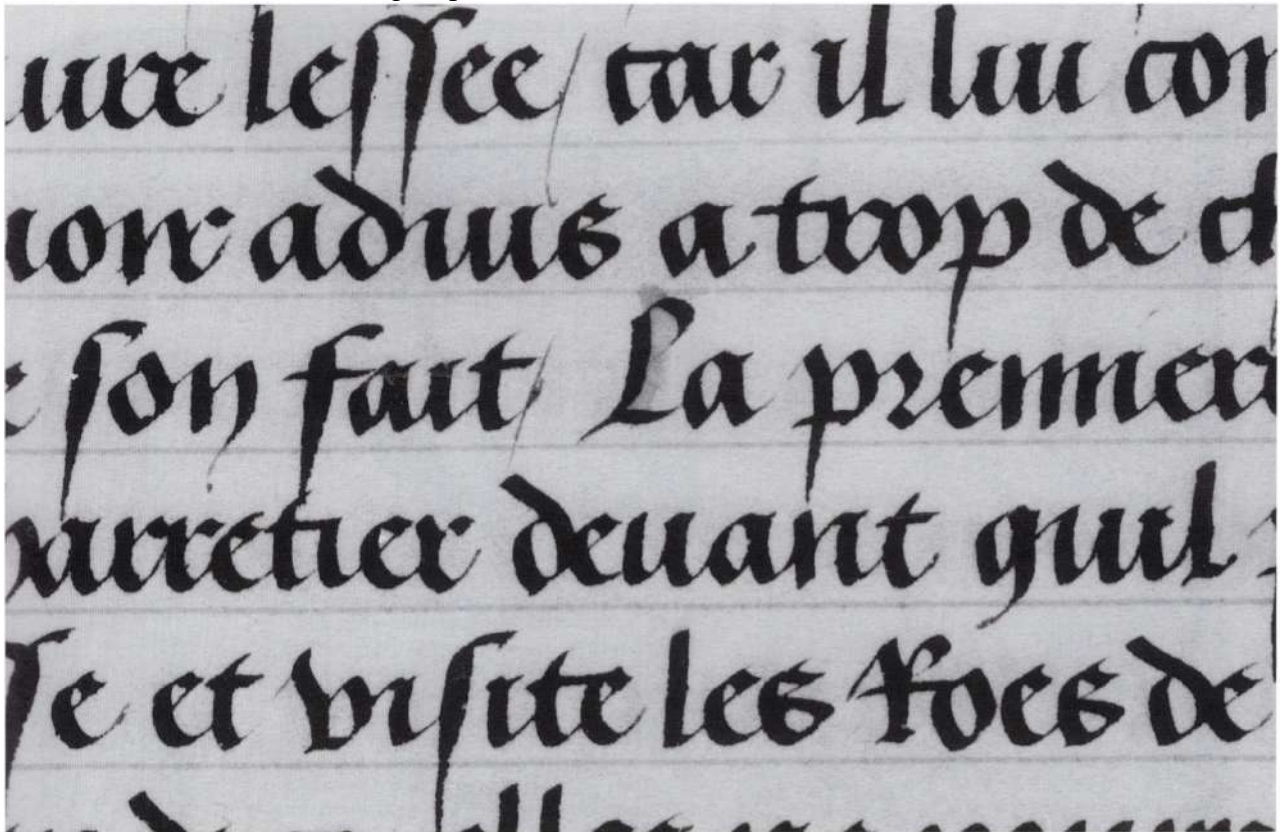 ure lessee / car il luy con
uoir aduis a trop de ch
e son fait / La premiere
harretier deuant quil
sse et visite les Roes de